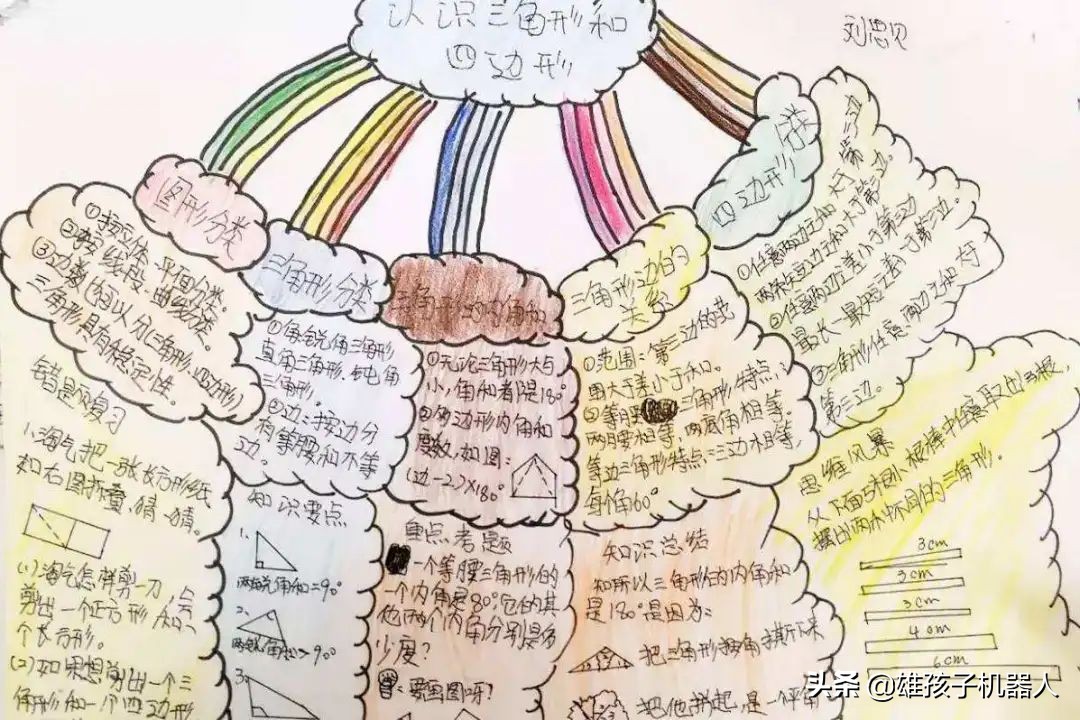 认识三角形和
四边形
刘思贝
图形分类
①按立体、平面分类。
②按线段、曲线分类。
③边数(也)以分几三角形、四边形)
三角形具有稳定性。
三角形分类
①角锐角三角形
直角三角形.钝角
三角形.
②边:按边分
有等腰和不等
边。
三角形的内角和
①无论三角形大与
小,角和都是180°
②多边形内角和
度数,如图:
(边-2)×180°
三角形边的
关系
①范围:第三边的范
围大于差小于和。
②等腰三角形特点:
两腰相等,两底角相等。
等边三角形特点:三边相等,
每个角60°
四边形分类
①任意两边之和大于第三边。
②任意两边之差小于第三边
③三角形任意两边之和大于
第三边。
错题复习
1、淘气把一张长方形纸
如右图折叠,猜一猜。
(1)淘气怎样剪一刀,会
剪出一个正方形和一
个长方形。
(2)如果想剪出一个三
角形和一个四边形
知识要点
1、
两锐角和=90°
2、
两锐角和>90°
3、
重点考题
一个等腰三角形的
一个内角是80°,它的其
他两个内角分别是多
少度?
:要画图呀?
知识总结
知所以三角形的内角和
是180°是因为:
把三角形按角撕下来
把他拼起,是一个平角
思维风暴
从下面5根小棍棒中任意取出3根,
摆出两个不同的三角形.
3cm
3cm
3cm
4cm
6cm
头条 @雄孩子机器人